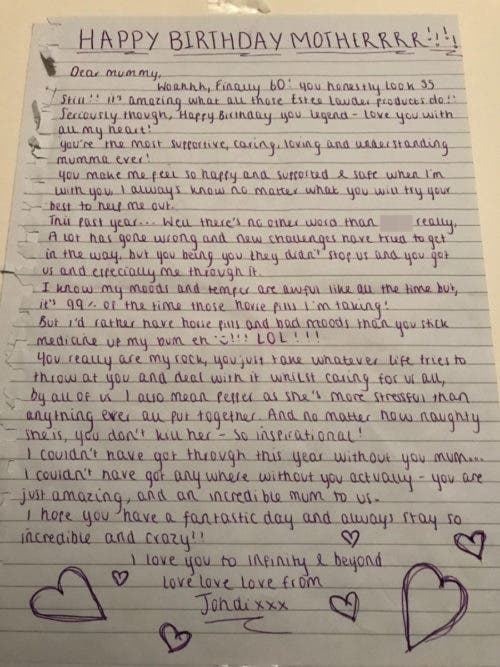 HAPPY BIRTHDAY MOTHERRRR!!!!
Dear mummy,
Woahhh, Finally 60! you honestly look 35
Still!! it's amazing what all those Estee Lauder products do!!
Seriously though, Happy Birthday you legend - love you with
all my heart!
You're the most supportive, caring, loving and understanding
mumma ever!
You make me feel so happy and supported & safe when I'm
with you, I always know no matter what you will try your
best to help me out.
This past year... Well there's no other word than really,
A lot has gone wrong and new challenges have tried to get
in the way, but you being you they didn't stop us and you got
us and especially me through it.
I know my moods and temper are awful like all the time but,
it's 99% of the time those horse pills I'm taking!
But I'd rather have horse pills and bad moods than you stick
medicine up my bum eh !!! LOL!!!
You really are my rock, you just take whatever life tries to
throw at you and deal with it whilst caring for us all,
by all of us I also mean pepper as she's more stressful than
anything ever all put together. And no matter how naughty
she is, you don't kill her - so inspirational!
I couldn't have got through this year without you mum...
I couldn't have got any where without you actually - you are
just amazing, and an incredible mum to us.
I hope you have a fantastic day and always stay so
incredible and crazy!!
I love you to infinity & beyond
Love love love from
Johdi xxx